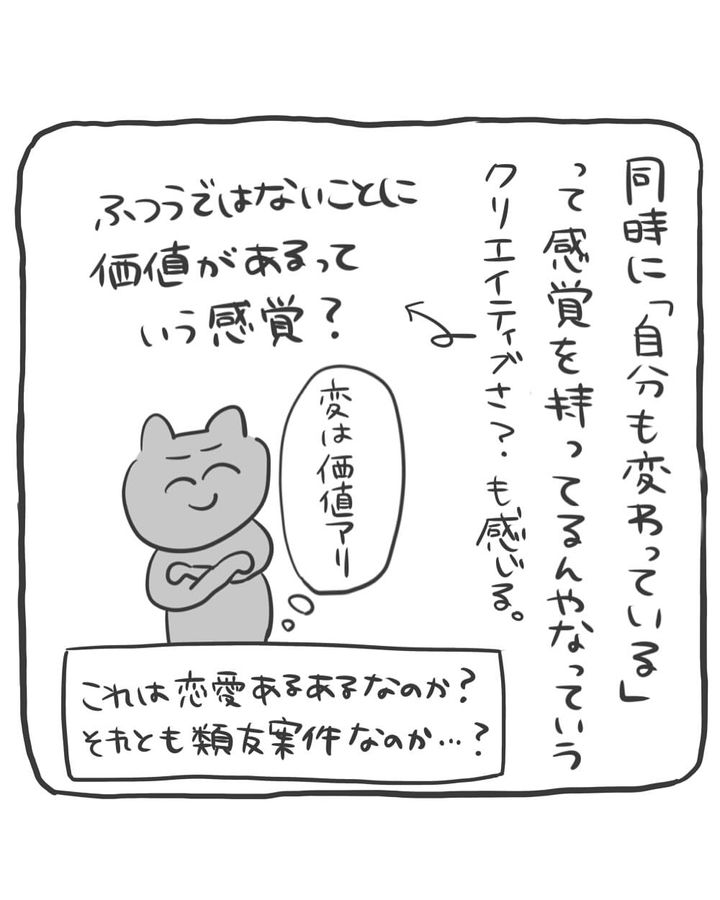 同時に「自分も変わっている」
って感覚を持ってるんやなっていう
クリエイティブさ？も感じる。
ふつうではないことに
価値があるって
いう感覚？
変は価値アリ
これは恋愛あるあるなのか？
それとも類友案件なのか…？